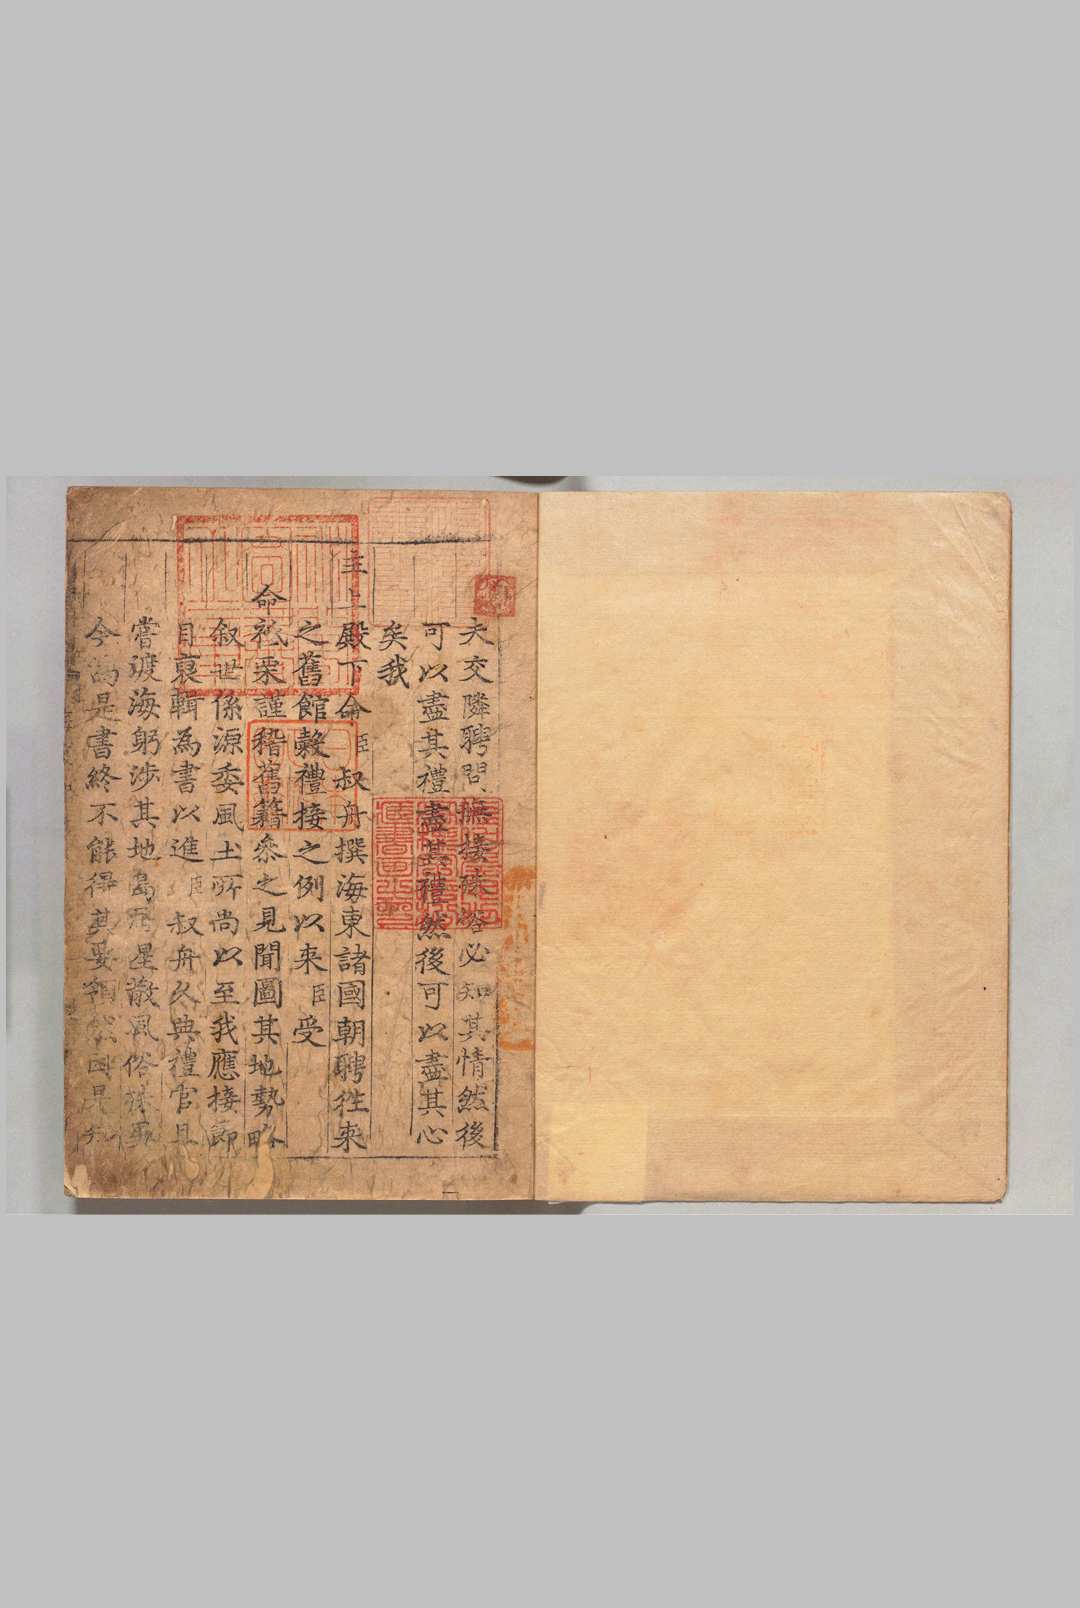 夫交隣聘問撫接殊俗必知其情然後
可以盡其禮盡其禮然後可以盡其心
矣我
主上殿下命臣叔舟撰海東諸國朝聘往来
之舊館穀禮接之例以来臣受
命祗栗謹稽舊籍叅之見聞圖其地勢略
叙世係源委風土所尚以至我應接節
目裒輯為書以進臣叔舟久典禮官且
嘗渡海躬渉其地島居星散風俗殊異
今為是書終不能得其要領然因是知